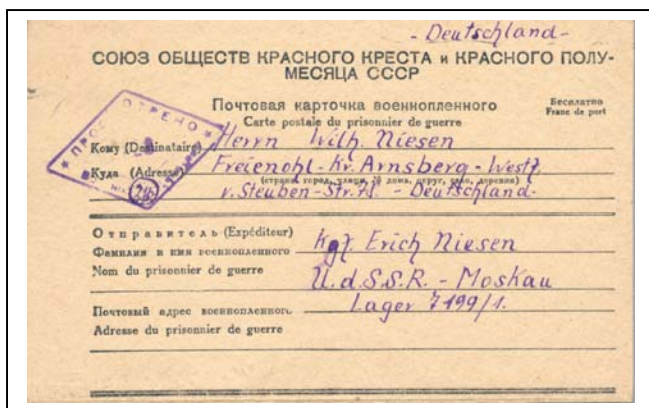 - Deutschland -
СОЮЗ ОБЩЕСТВ КРАСНОГО КРЕСТА и КРАСНОГО ПОЛУ-
МЕСЯЦА СССР
Почтовая карточка военнопленного
Бесплатно
Carte postale du prisonnier de guerre
Franc de port
ПРОСМОТРЕНО
Кому (Destinataire) Herrn Wilh. Niesen
Куда (Adresse) Freienohl - Kr. Arnsberg - Westf.
(страна, город, улица, № дома, округ, село, деревня)
v. Steuben - Str. - Deutschland -
Отправитель (Expéditeur)
Фамилия и имя военнопленного Kgf. Erich Niesen
Nom du prisonnier de guerre
U.d.S.S.R. - Moskau
Почтовый адрес военнопленного Lager 7199/1.
Adresse du prisonnier de guerre